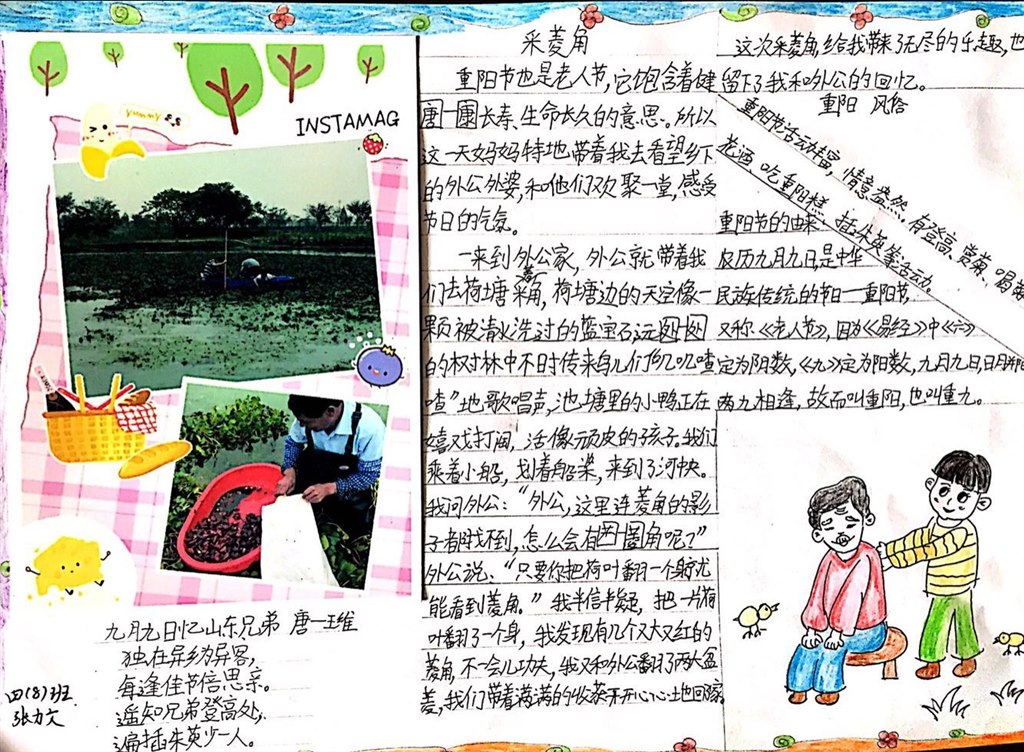 yummy
INSTAMAG
九月九日忆山东兄弟 唐一王维
独在异乡为异客,
每逢佳节倍思亲。
遥知兄弟登高处,
遍插朱英少一人。
四(8)班
张力文
采菱角
重阳节也是老人节,它饱含着健
康长寿、生命长久的意思。所以
这一天妈妈特地带着我去看望乡下
的外公外婆,和他们欢聚一堂,感受
节日的气氛。
一来到外公家,外公就带着我
们去荷塘采菱角,荷塘边的天空像一
颗被清水洗过的蓝宝石,
的树林中不时传来鸟儿们叽叽喳
喳”地歌唱声,池塘里的小鸭正在
嬉戏打闹,活像顽皮的孩子。我们
乘着小船,划着船桨,来到了河中央。
我问外公:“外公,这里连菱角的影
子都找不到,怎么会有菱角呢?”
外公说:“只要你把荷叶翻一个身就
能看到菱角。”我半信半疑,把一片荷
叶翻了一个身,我发现有几个又大又红的
菱角,不一会儿功夫,我又和外公翻了两大盆
菱,我们带着满满的收获开开心心地回家
这次采菱角,给我带来了无尽的乐趣,也
留下了我和外公的回忆。
重阳 风俗
重阳节活动丰富,情意盎然,有登高、赏菊、喝菊
花酒、吃重阳糕、插朱英等活动。
重阳节的由来
农历九月九日,是中华
民族传统的节日—重阳节,
又称《老人节》,因为《易经》中《六》
定为阴数,《九》定为阳数,九月九日,日月并
两九相逢,故而叫重阳,也叫重九。